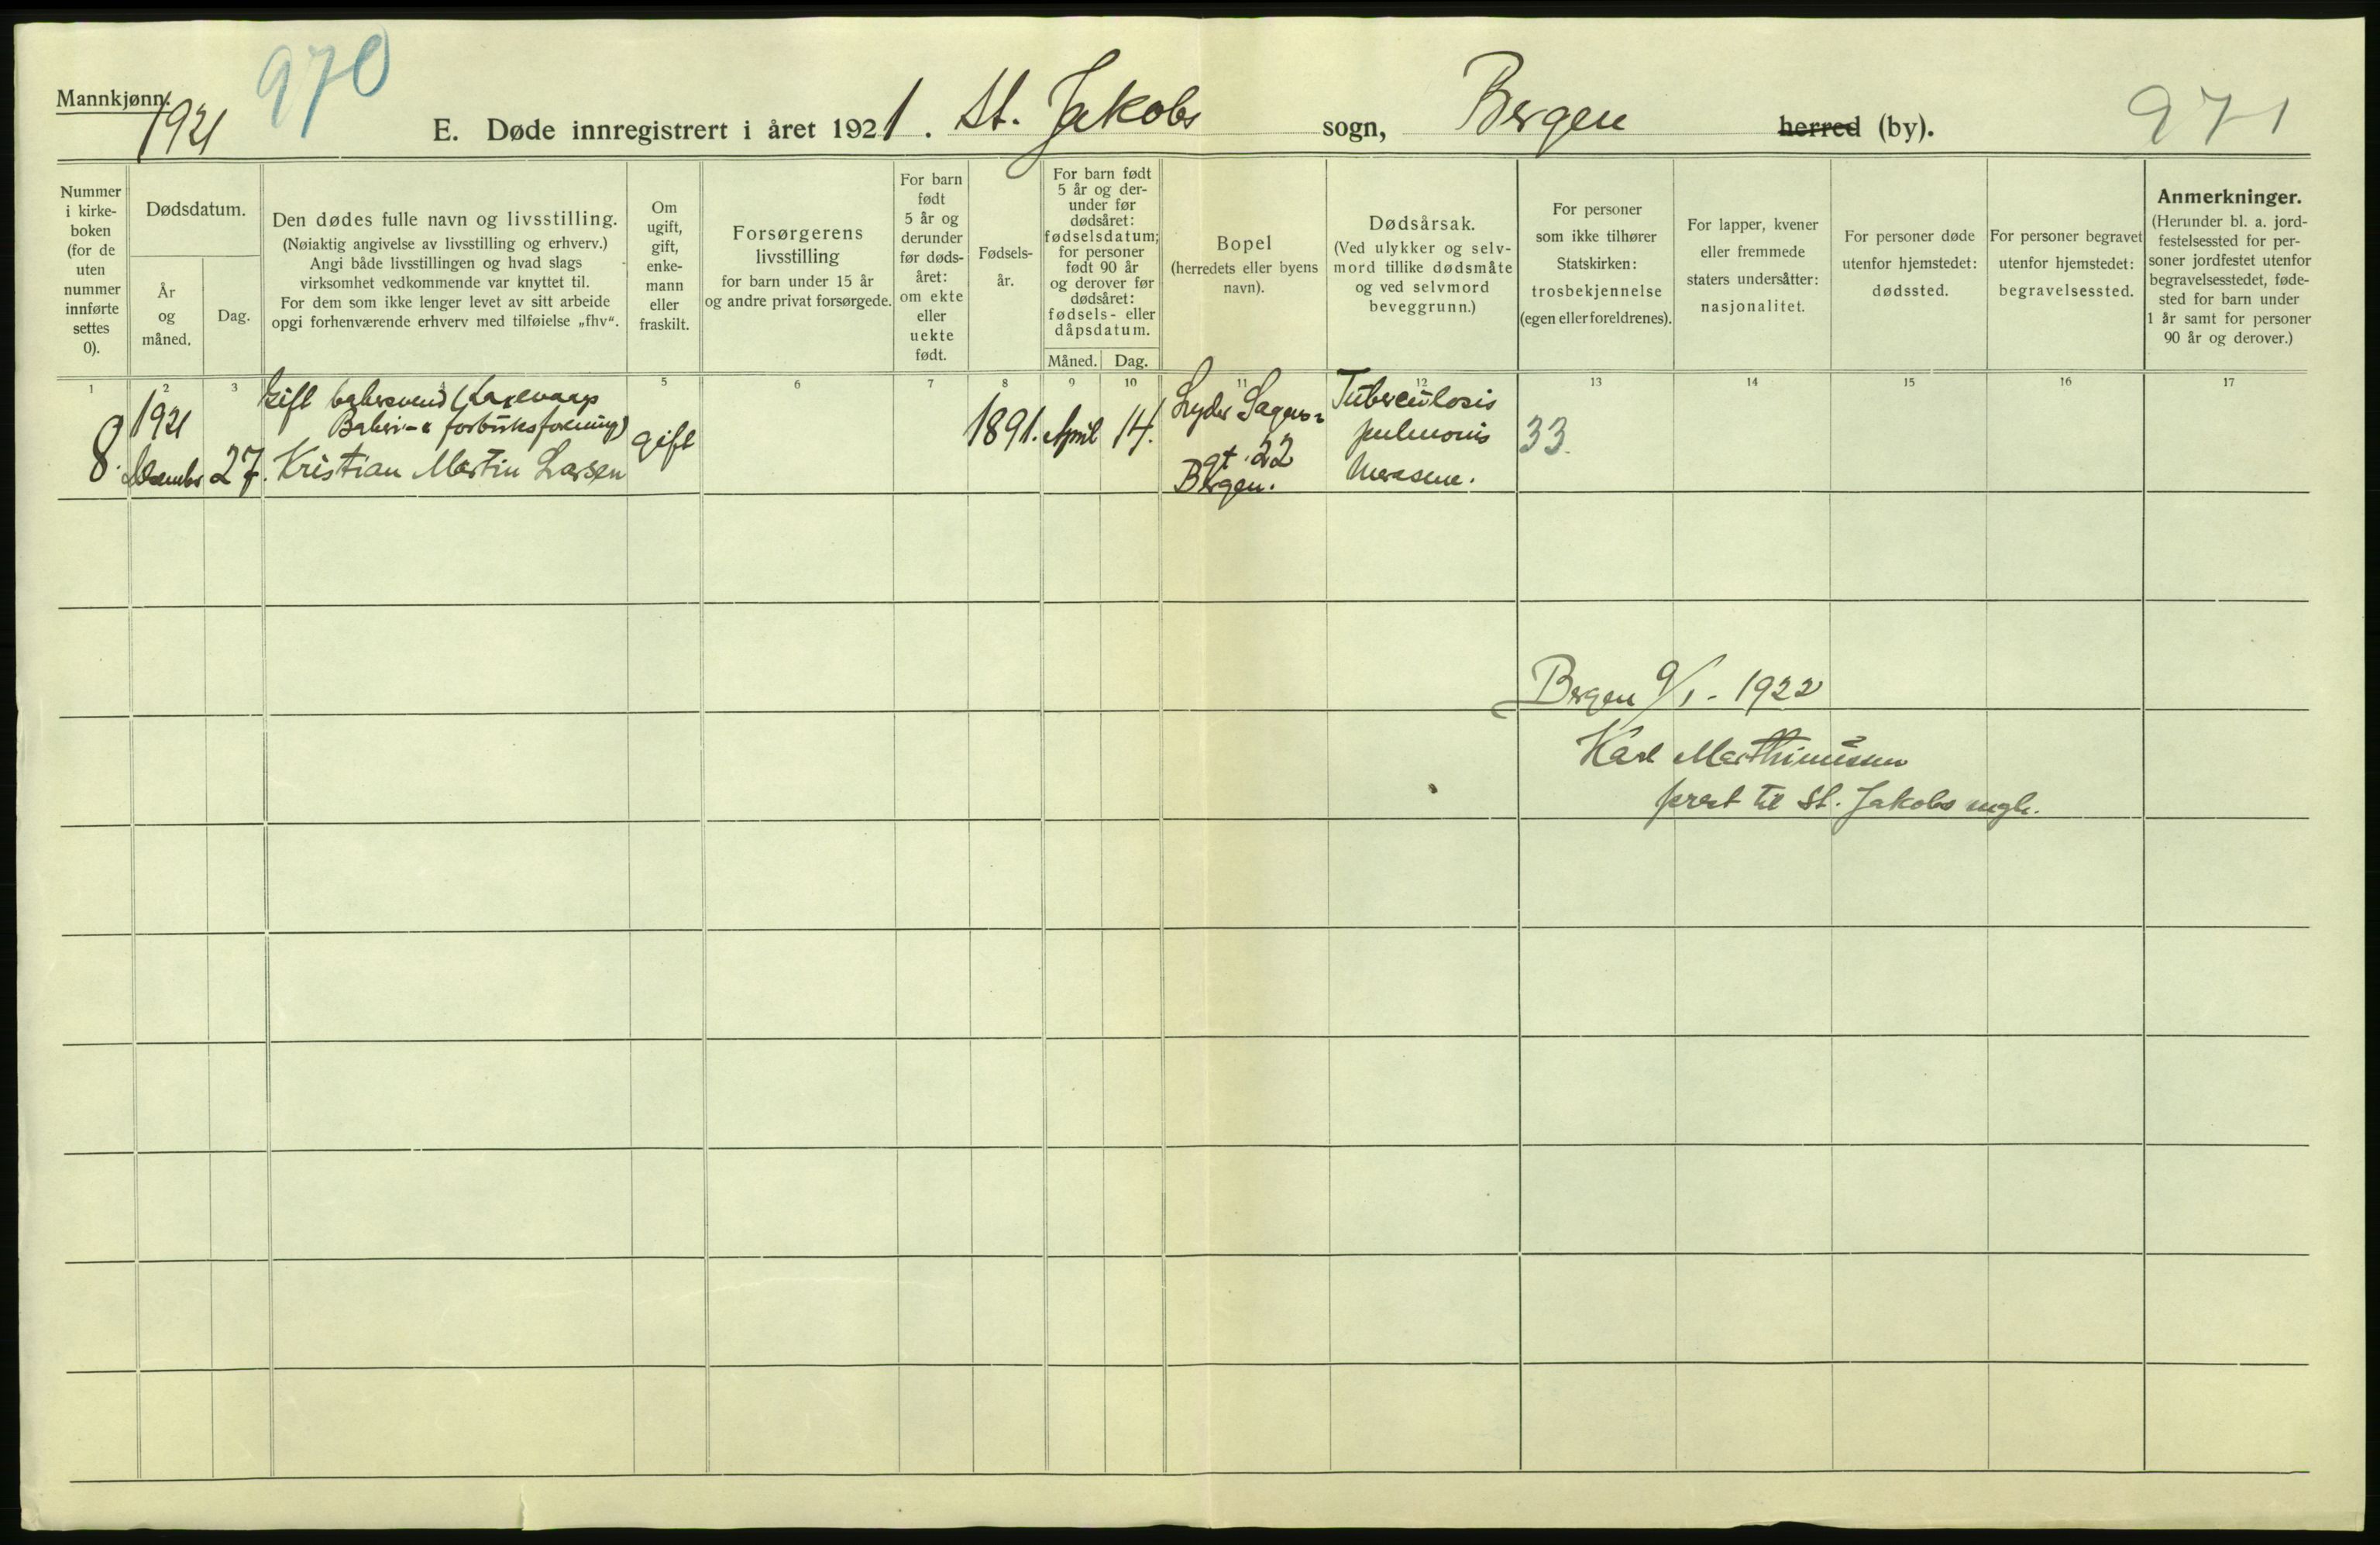 Mannkjønn.
1921
970
E. Døde innregistrert i året 1921. St. Jakobs sogn, Bergen herred (by).
971
Nummer
i kirke-
boken
(for de
uten
nummer
innførte
settes
0).
Dødsdatum.
År
og
måned.
Dag.
Den dødes fulle navn og livsstilling.
(Nøiaktig angivelse av livsstilling og erhverv.)
Angi både livsstillingen og hvad slags
virksomhet vedkommende var knyttet til.
For dem som ikke lenger levet av sitt arbeide
opgi forhenværende erhverv med tilføielse „fhv“.
Om
ugift,
gift,
enke-
mann
eller
fraskilt.
Forsørgerens
livsstilling
for barn under 15 år
og andre privat forsørgede.
For barn
født
5 år og
derunder
før døds-
året:
om ekte
eller
uekte
født.
Fødsels-
år.
For barn født
5 år og der-
under før
dødsåret:
fødselsdatum;
for personer
født 90 år
og derover før
dødsåret:
fødsels- eller
dåpsdatum.
Måned.
Dag.
Bopel
(herredets eller byens
navn).
Dødsårsak.
(Ved ulykker og selv-
mord tillike dødsmåte
og ved selvmord
beveggrunn.)
For personer
som ikke tilhører
Statskirken:
trosbekjennelse
(egen eller foreldrenes).
For lapper, kvener
eller fremmede
staters undersåtter:
nasjonalitet.
For personer døde
utenfor hjemstedet:
dødssted.
For personer begravet
utenfor hjemstedet:
begravelsessted.
Anmerkninger.
(Herunder bl. a. jord-
festelsessted for per-
soner jordfestet utenfor
begravelsesstedet, føde-
sted for barn under
1 år samt for personer
90 år og derover.)
1 2 3 4 5 6 7 8 9 10 11 12 13 14 15 16 17
8.
1921
Desember
27.
Gift bakersvend (Laxevaags
Bakeri- & forbruksforening)
Kristian Martin Larsen
gift
1891.
April
14.
Lyder Sagens-
gt. 22
Bergen.
Tuberculosis
pulmonis
33.
Bergen 9/1 - 1922
Karl Marthinussen
prest til St. Jakobs mgh.